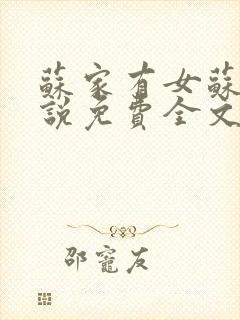 蘇家有女蘇
說免費全文
邵竈友